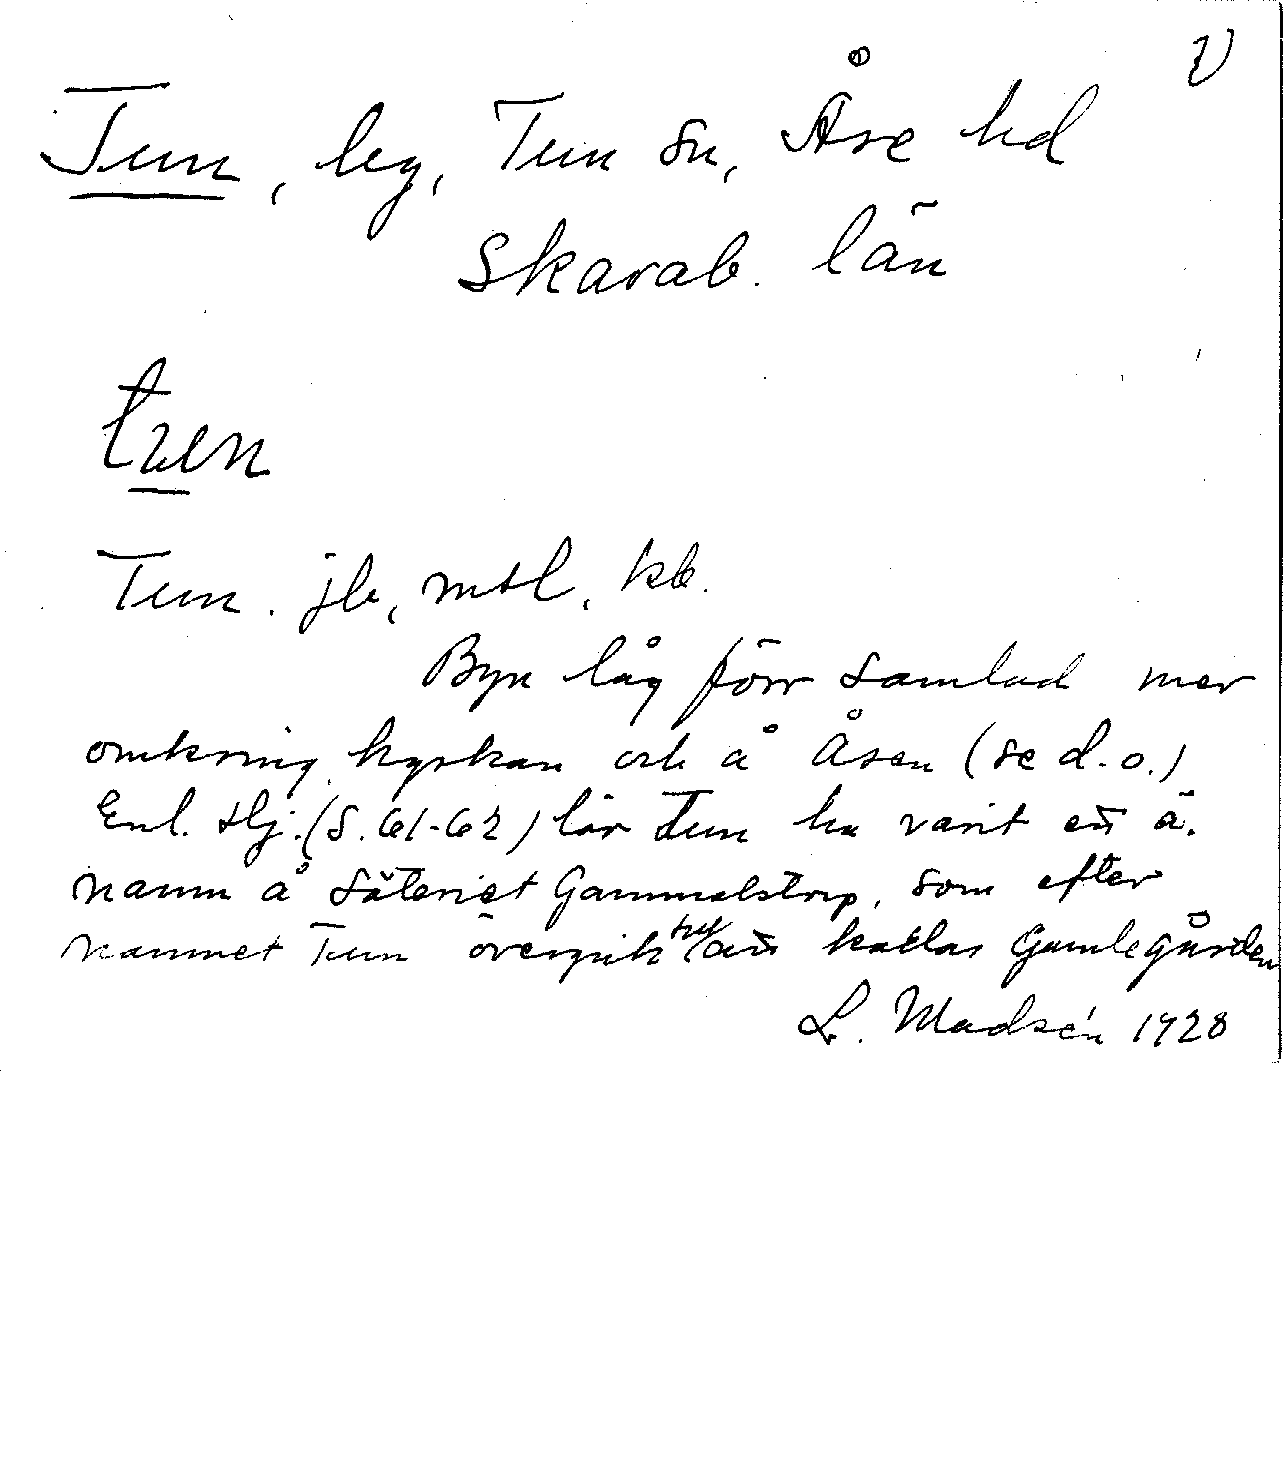 V
Tun, by, Tun sn, Åse hd
Skarab. län
Tun. jb, mtl, kb.
Byn låg förr samlad mer
omkring kyrkan och å Åsen (se d.o.)
Enl. Hj. (S. 61-62) lär Tun ha varit ett ä.
namn å säteriet Gammalstorp, som efter
namnet Tun övergick till att kallas Gamlegården
L. Madsén 1928